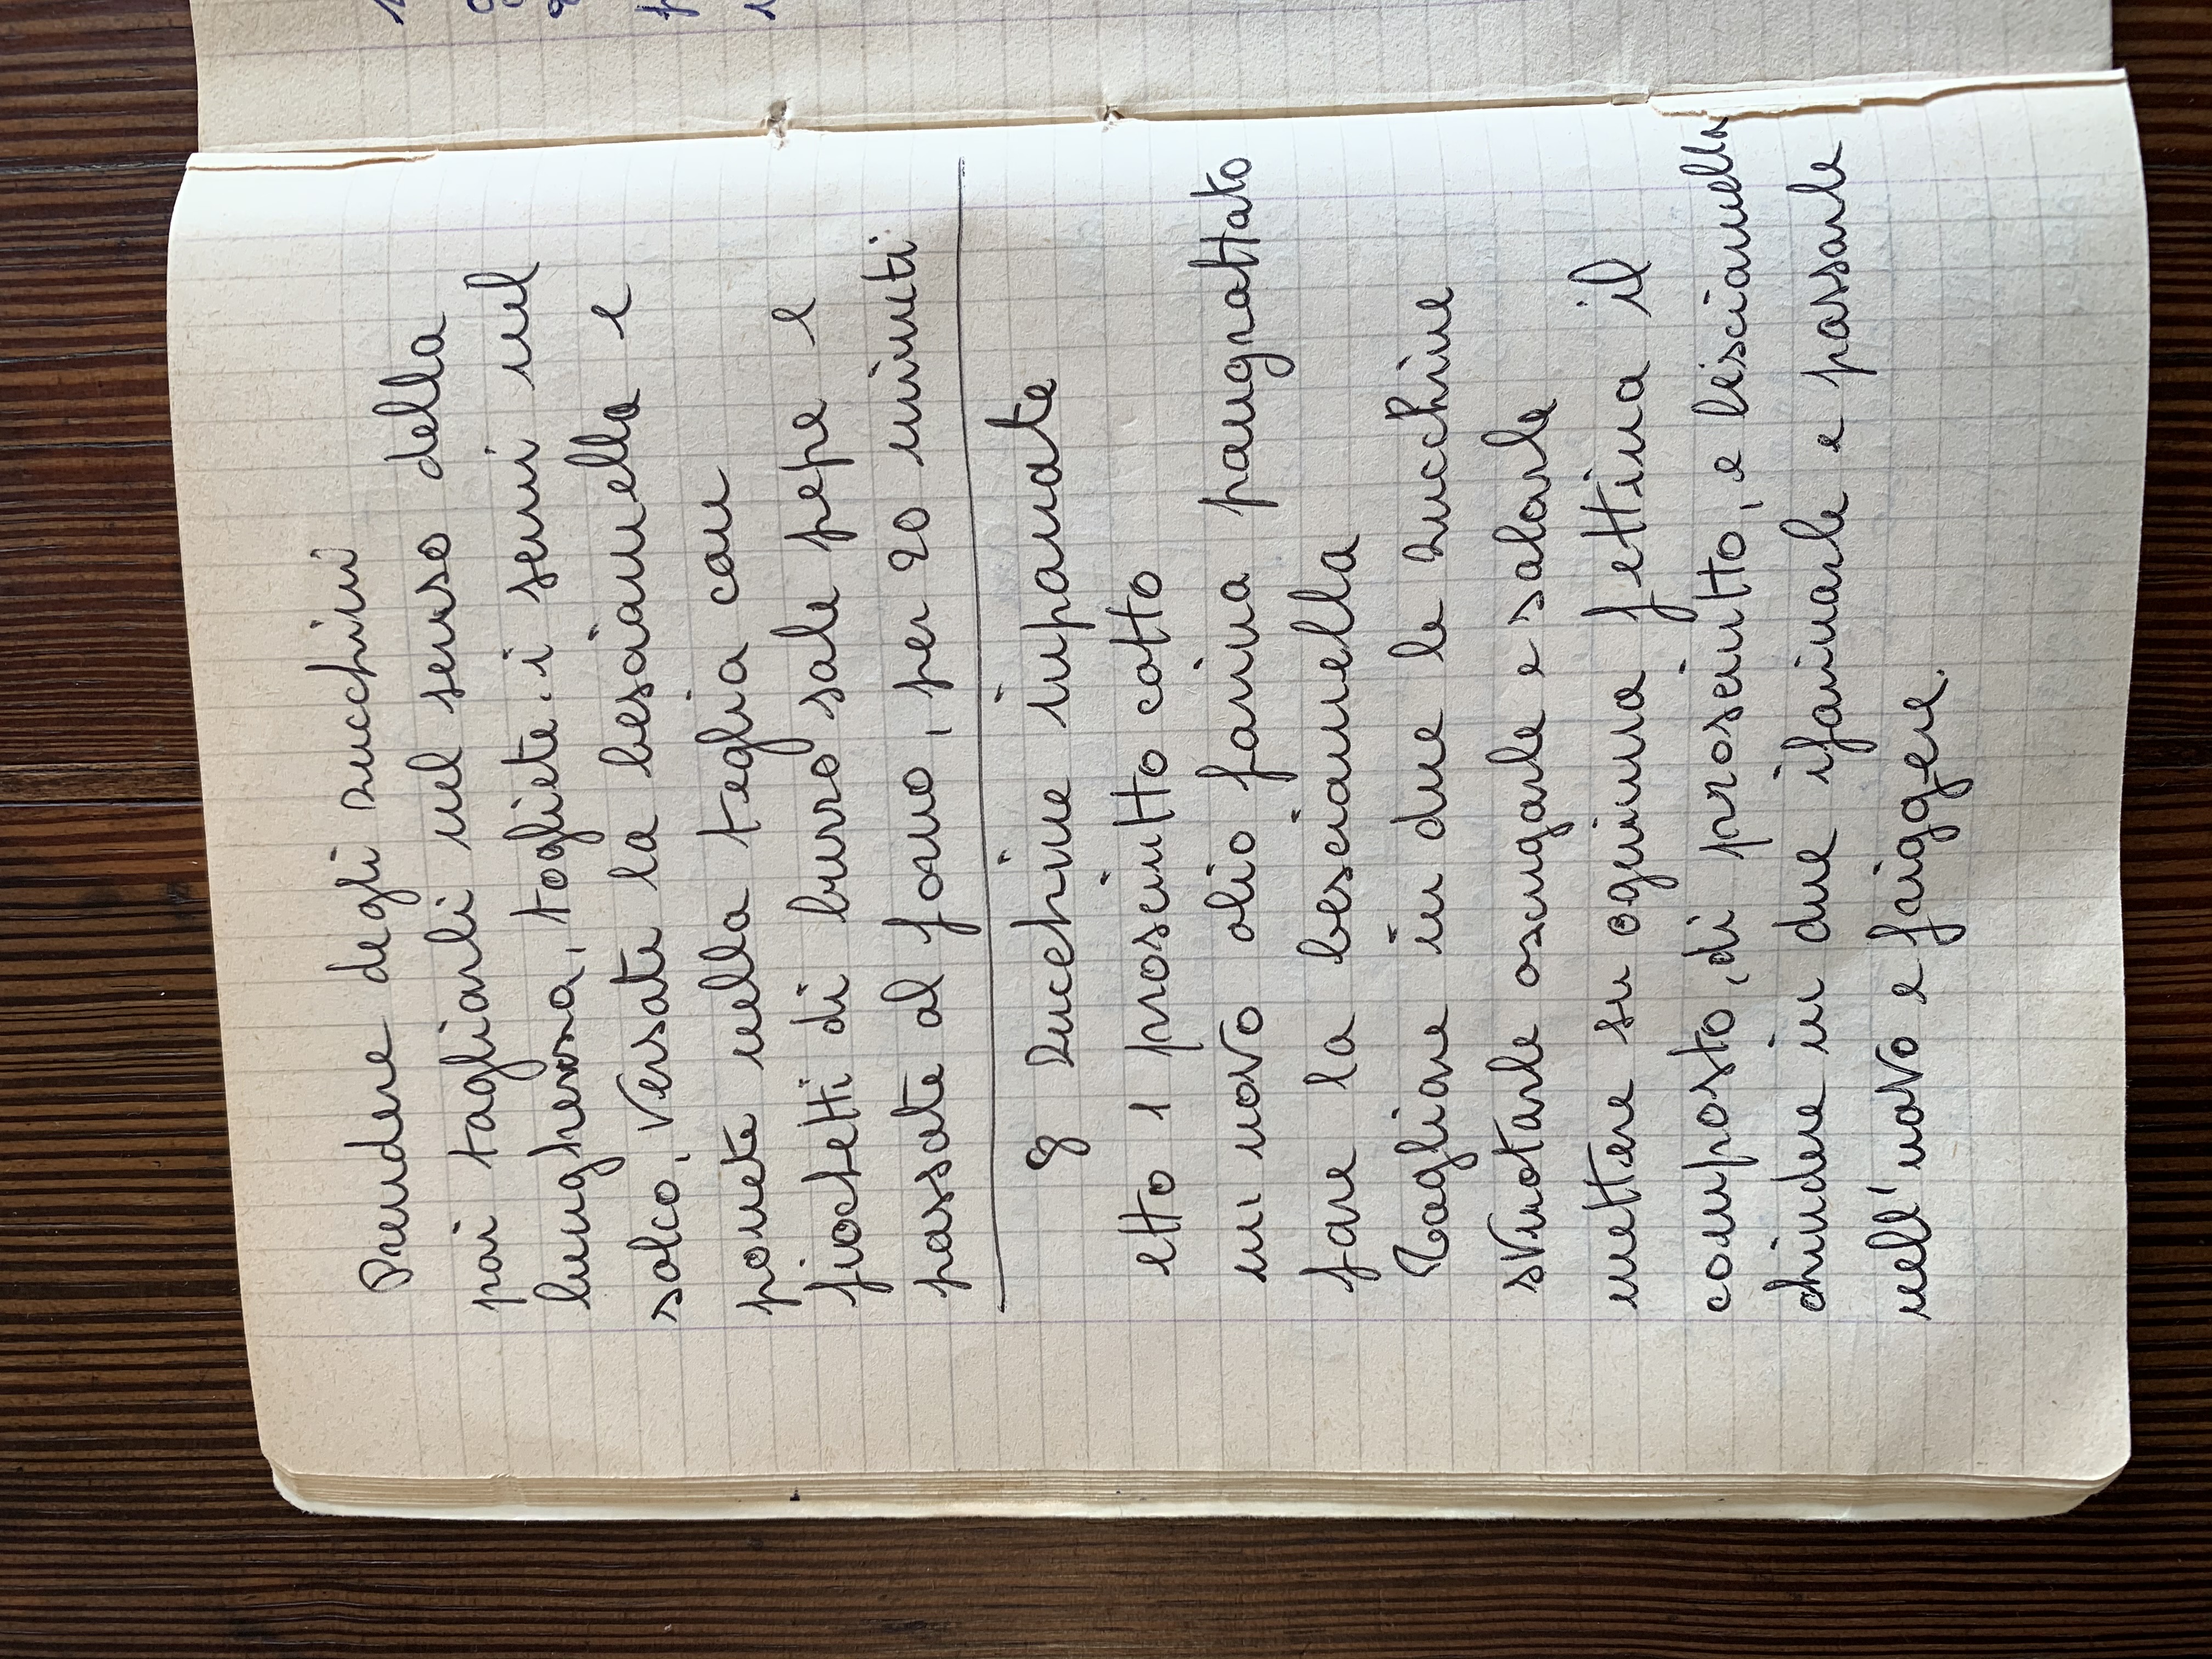 Prendere degli zucchini
poi tagliarli nel senso della
lunghezza, togliete. i semi nel
solco, versate la besciamella e
ponete nella teglia con
fiochetti di burro sale pepe e
passate al forno, per 20 minuti
8 zucchine inpanate
etto 1 prosciutto cotto
un uovo olio farina pangrattato
fare la besciamella
Tagliare in due le zucchine
svuotarle asciugarle e salarle
mettere su ogniuna fettina il
composto, di prosciutto, e besciamella
chiudere in due ifarinarle e passarle
nell'uovo e friggere.